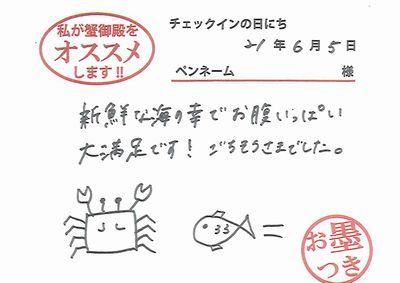 私が蟹御殿を
オススメ
します!!
チェックインの日にち
21年6月5日
ペンネーム 様
新鮮な海の幸でお腹いっぱい
大満足です! ごちそうさまでした。
お墨
つき